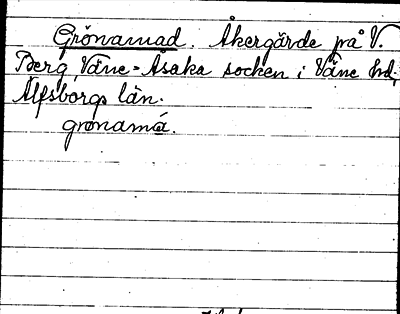 Grönamad. Åkergärde på V.
Berg, Väne-Åsaka socken i Väne hd,
Älfsborgs län.
gronamá.